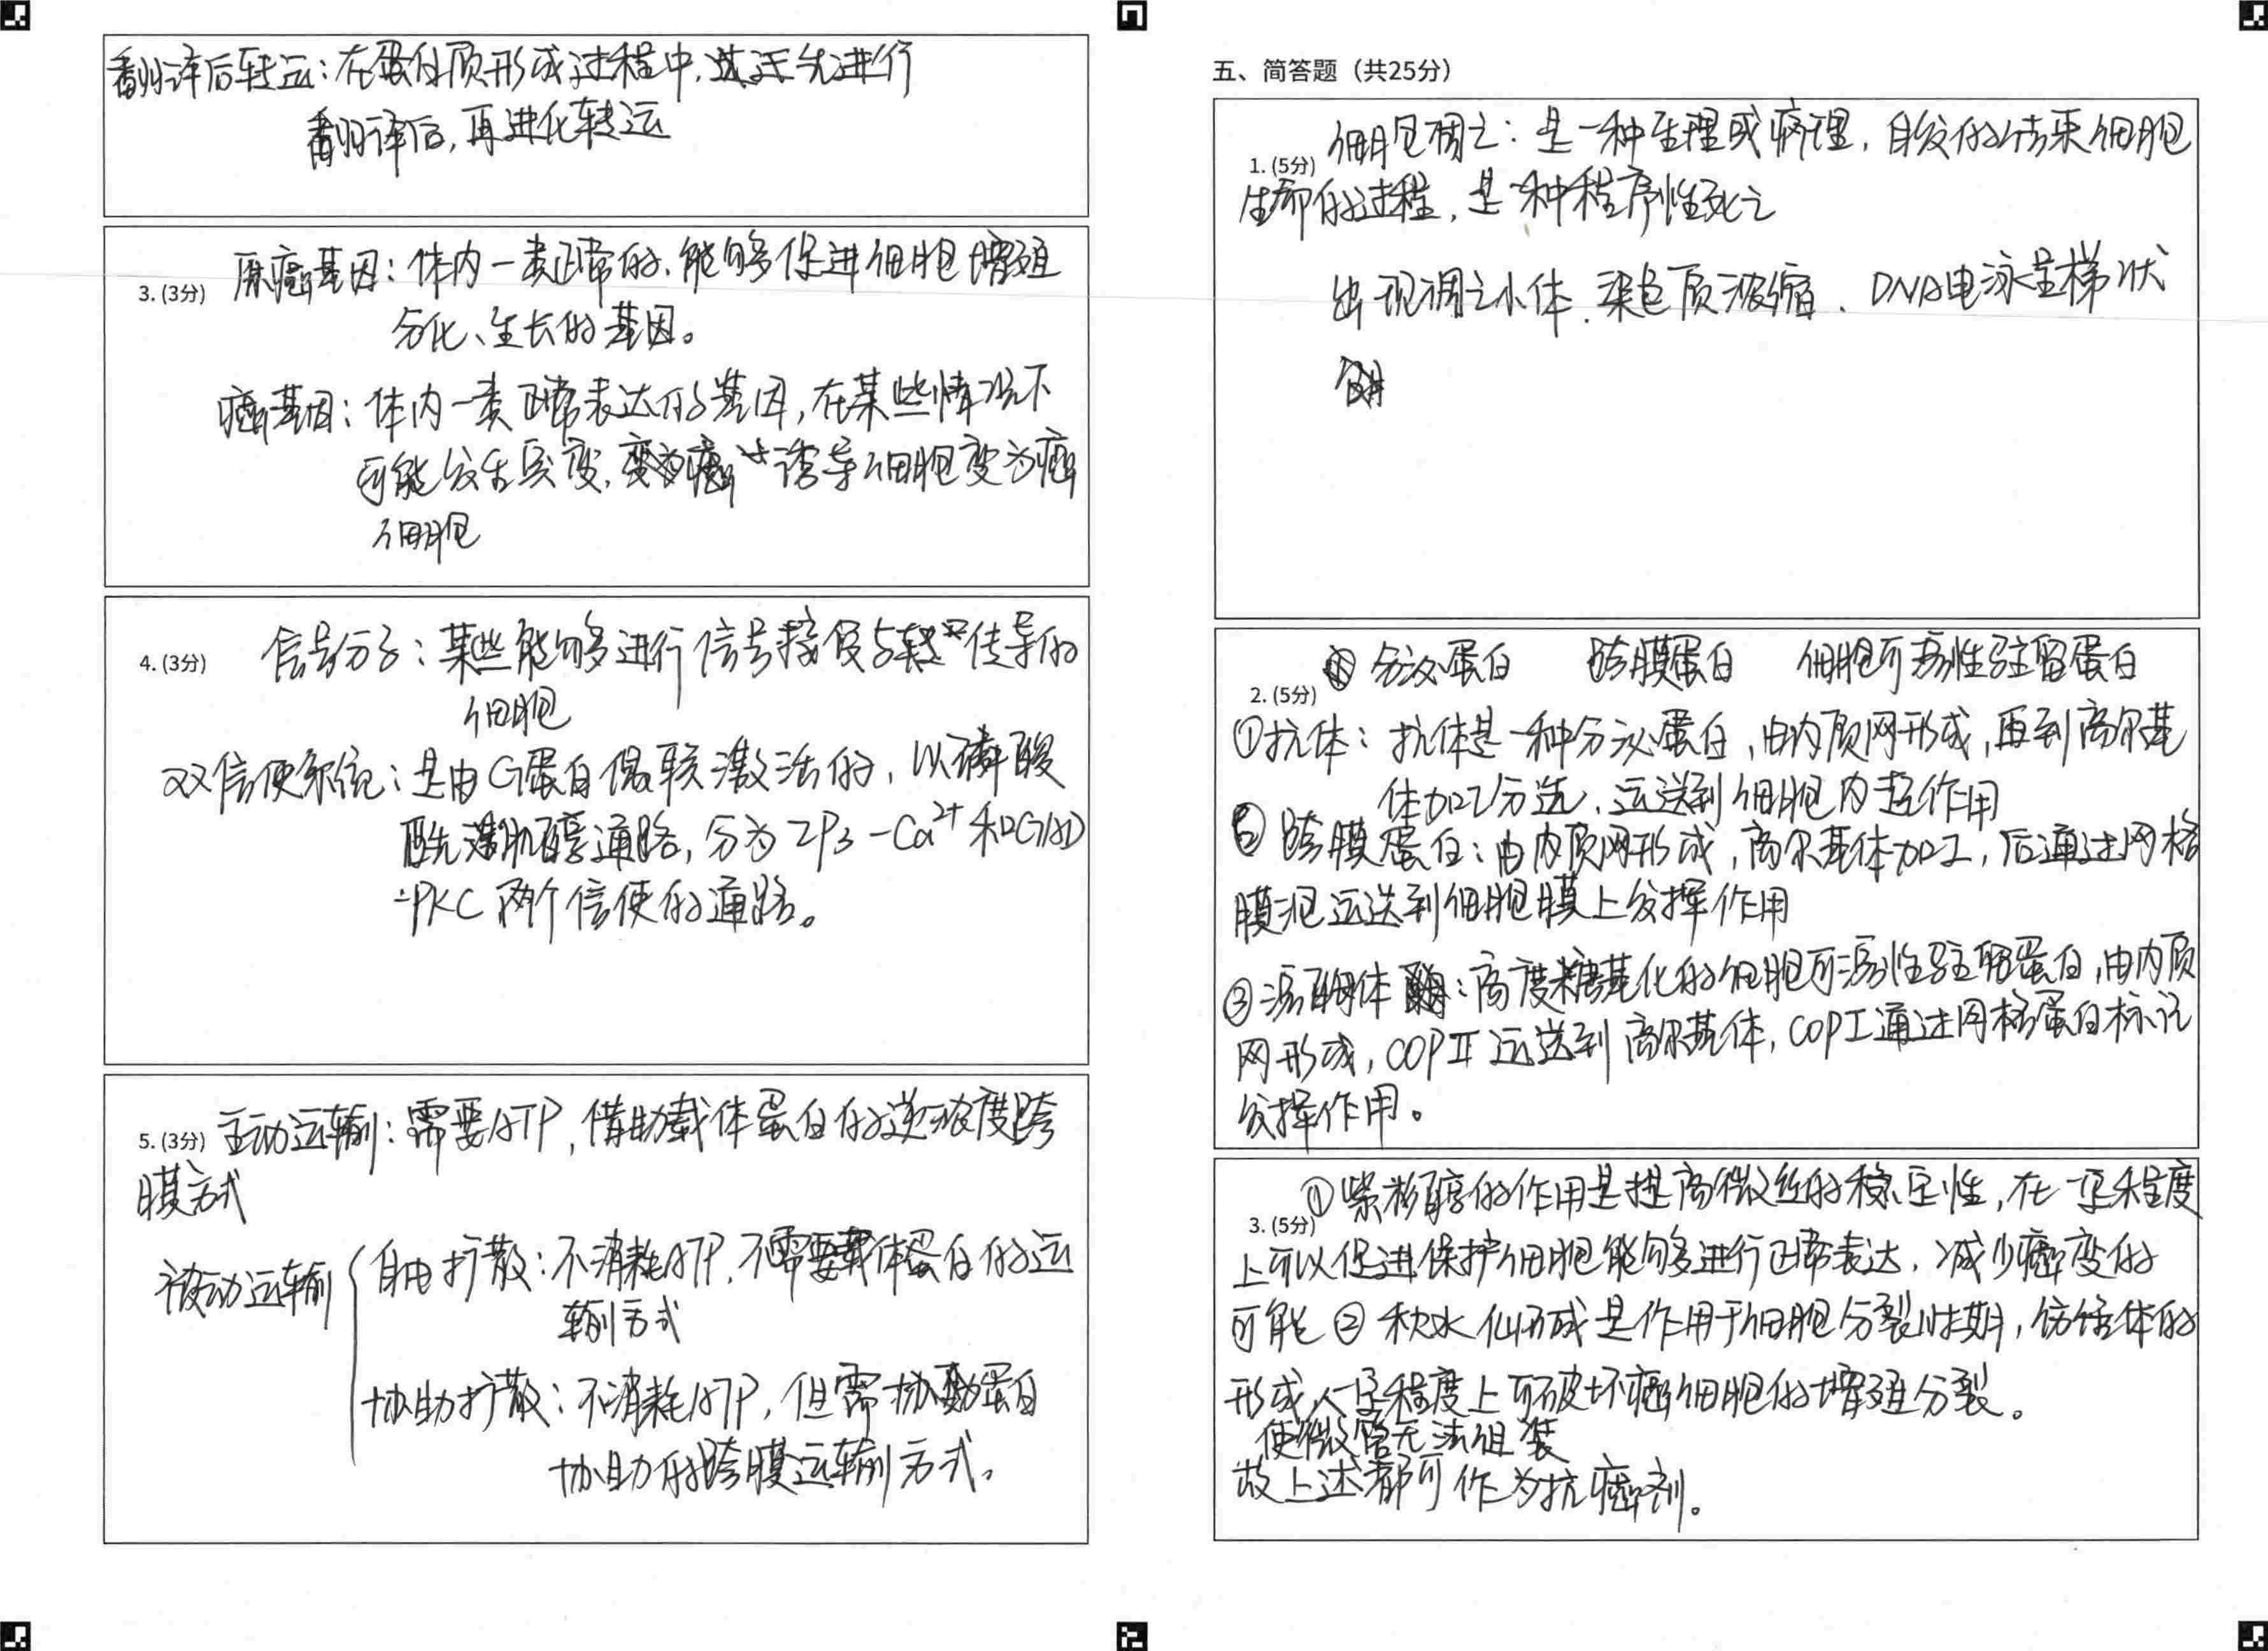 翻译后转运：在蛋白质形成过程中，先进行
翻译后，再进化转运
3. (3分) 原癌基因：体内一类正常的、能够促进细胞增殖
分化、生长的基因。
癌基因：体内一类正常表达的基因，在某些情况下
可能发生突变，诱导细胞变为癌
细胞
4. (3分) 信号分子：某些能够进行信号接受与传导的
细胞
双信使系统：是由G蛋白偶联激活的，以磷酸
酰肌醇通路，分为IP3-Ca²⁺和DG(DAG)
-PKC 两个信使的通路。
5. (3分) 主动运输：需要ATP，借助载体蛋白的逆浓度跨
膜方式
被动运输
自由扩散：不消耗ATP，不需要载体蛋白的运
输方式
协助扩散：不消耗ATP，但需协助蛋白
协助的跨膜运输方式。
五、简答题（共25分）
1. (5分) 细胞凋亡：是一种生理或病理，自发的结束细胞
生命的过程，是一种程序性死亡
出现凋亡小体、染色质浓缩、DNA电泳呈梯状
2. (5分) 分泌蛋白 跨膜蛋白 细胞可溶性驻留蛋白
①抗体：抗体是一种分泌蛋白，由内质网形成，再到高尔基
体加工分选，运送到细胞内起作用
② 跨膜蛋白：由内质网形成，高尔基体加工，后通过网格
膜泡运送到细胞膜上发挥作用
③溶酶体酶：高度糖基化的细胞可溶性驻留蛋白，由内质
网形成，COPⅡ运送到高尔基体，COPⅠ通过网格蛋白标记
发挥作用。
3. (5分) ①紫杉醇的作用是提高微丝的稳定性，在一定程度
上可以促进保护细胞能够进行正常表达，减少癌变的
可能 ② 秋水仙碱是作用于细胞分裂时期，纺锤体的
形成，一定程度上可破坏癌细胞的增殖分裂。
使微管无法组装
故上述都可作为抗癌剂。